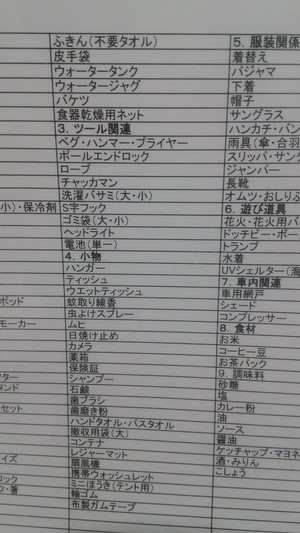 ふきん(不要タオル)
皮手袋
ウォータータンク
ウォータージャグ
バケツ
食器乾燥用ネット
3. ツール関連
ペグ・ハンマー・プライヤー
ポールエンドロック
ロープ
チャッカマン
洗濯バサミ(大・小)
小)・保冷剤 S字フック
ゴミ袋(大・小)
ヘッドライト
電池(単一)
4. 小物
ハンガー
ティッシュ
ウエットティッシュ
ポッド 蚊取り線香
虫よけスプレー
モーカー ムヒ
日焼け止め
カメラ
薬箱
保険証
ター シャンプー
タンド 石鹸
歯ブラシ
セット 歯磨き粉
ハンドタオル・バスタオル
撤収用袋(大)
コンテナ
レジャーマット
イズ 扇風機
携帯ウォッシュレット
ロック ミニほうき(テント用)
ツ・著 輪ゴム
布製ガムテープ
5. 服装関係
着替え
パジャマ
下着
帽子
サングラス
ハンカチ・パン
雨具(傘・合羽
スリッパ・サンダ
ジャンパー
長靴
オムツ・おしりふ
6. 遊び道具
花火・花火用バ
ドッチビー・ボー
トランプ
水着
UVシェルター(海
7. 車内関連
車用網戸
シェード
コンプレッサー
8. 食材
お米
コーヒー豆
お茶パック
9. 調味料
砂糖
塩
カレー粉
油
ソース
醤油
ケチャップ・マヨネ
酒・みりん
こしょう